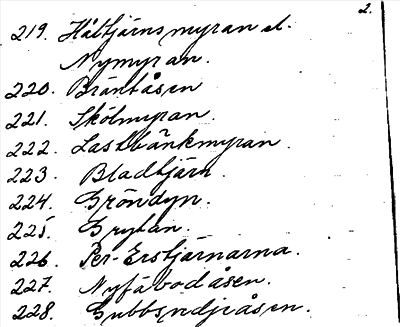 2.
219. Håltjärnsmyran el.
Nymyran.
220. Bräntåsen
221. Skölmyran.
222. Lastbänkmyran.
223. Bladtjärn.
224. Gröndyn.
225. Grytan.
226. Per-Erstjärnarna.
227. Nyfäbodåsen.
228.